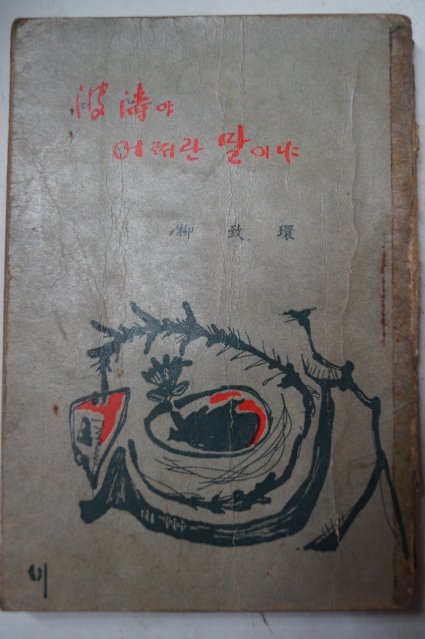 波濤야
어쩌란 말이냐
柳 致 環